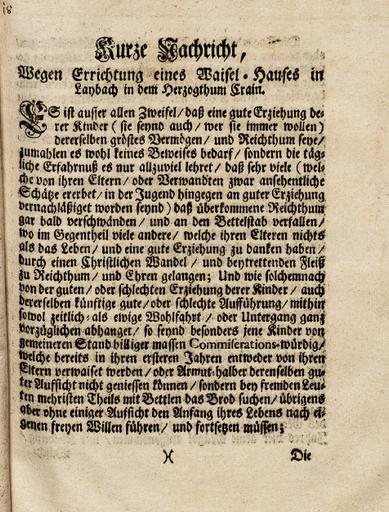 18
Kurze Nachricht,
Wegen Errichtung eines Waisel-Hauses in
Laybach in dem Herzogthum Crain.
ES ist ausser allen Zweifel/ daß eine gute Erziehung de-
rer Kinder (sie seynd auch/ wer sie immer wollen)
dererselben gröstes Vermögen/ und Reichthum seye/
zumahlen es wohl keines Beweises bedarf/ sondern die täg-
liche Erfahrnuß es nur allzuviel lehret/ daß sehr viele (wel-
che von ihren Eltern/ oder Verwandten zwar ansehentliche
Schätze ererbet/ in der Jugend hingegen an guter Erziehung
vernachläßiget worden seynd) daß überkommene Reichthum
gar bald verschwänden/ und an den Bettelstab verfallen/
wo im Gegentheil viele andere/ welche ihren Elteren nichts
als das Leben/ und eine gute Erziehung zu danken haben/
durch einen Christlichen Wandel/ und beytrettenden Fleiß
zu Reichthum/ und Ehren gelangen; Und wie solchemnach
von der guten/ oder schlechten Erziehung derer Kinder/ auch
dererselben künftige gute/ oder schlechte Aufführung/ mithin
sowol zeitlich- als ewige Wohlfahrt/ oder Untergang ganz
vorzüglichen abhanget/ so seynd besonders jene Kinder von
gemeineren Stand billiger massen Commiserations-würdig/
welche bereits in ihren ersteren Jahren entweder von ihren
Eltern verwaiset werden/ oder Armut-halber derenselben gu-
ter Aufsicht nicht geniessen können/ sondern bey fremden Leu-
ten mehristen Theils mit Bettlen das Brod suchen/ übrigens
aber ohne einiger Aufsicht den Anfang ihres Lebens nach ei-
genen freyen Willen führen/ und fortsetzen müssen;
)( Die